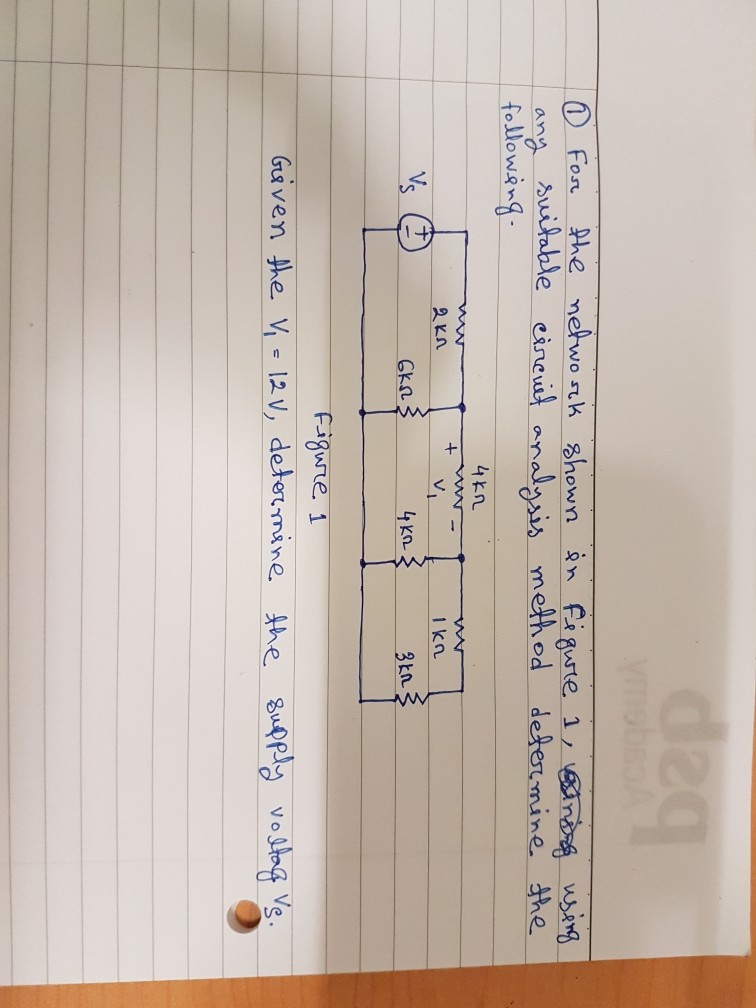 ① For the network shown in Figure 1, using
any suitable circuit analysis method determine the
following.
4kΩ
2kΩ
+ V₁ -
1kΩ
Vs
+
-
6kΩ
4kΩ
3kΩ
Figure 1
Given the V₁ = 12V, determine the supply voltag Vs.
psb
Academy